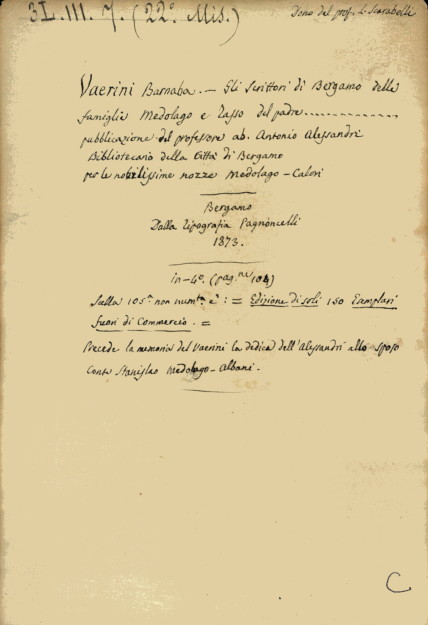 3L.III.7. (22° Mis.)
Dono del prof. L. Scarabelli
Vaerini Barnaba. — Gli Scrittori di Bergamo delle
famiglie Medolago e Tasso del padre..............
pubblicazione del professore ab. Antonio Alessandri
Bibliotecario della Città di Bergamo
per le nobilissime nozze Medolago - Calori
Bergamo
Dalla Tipografia Pagnoncelli
1873.
in-4°. (pag.ne 104)
Sulla 105.a non num.ta è: = Edizione di soli 150 Esemplari
fuori di Commercio. =
Precede la memoria del Vaerini la dedica dell'Alessandri allo sposo
Conte Stanislao Medolago - Albani.
C